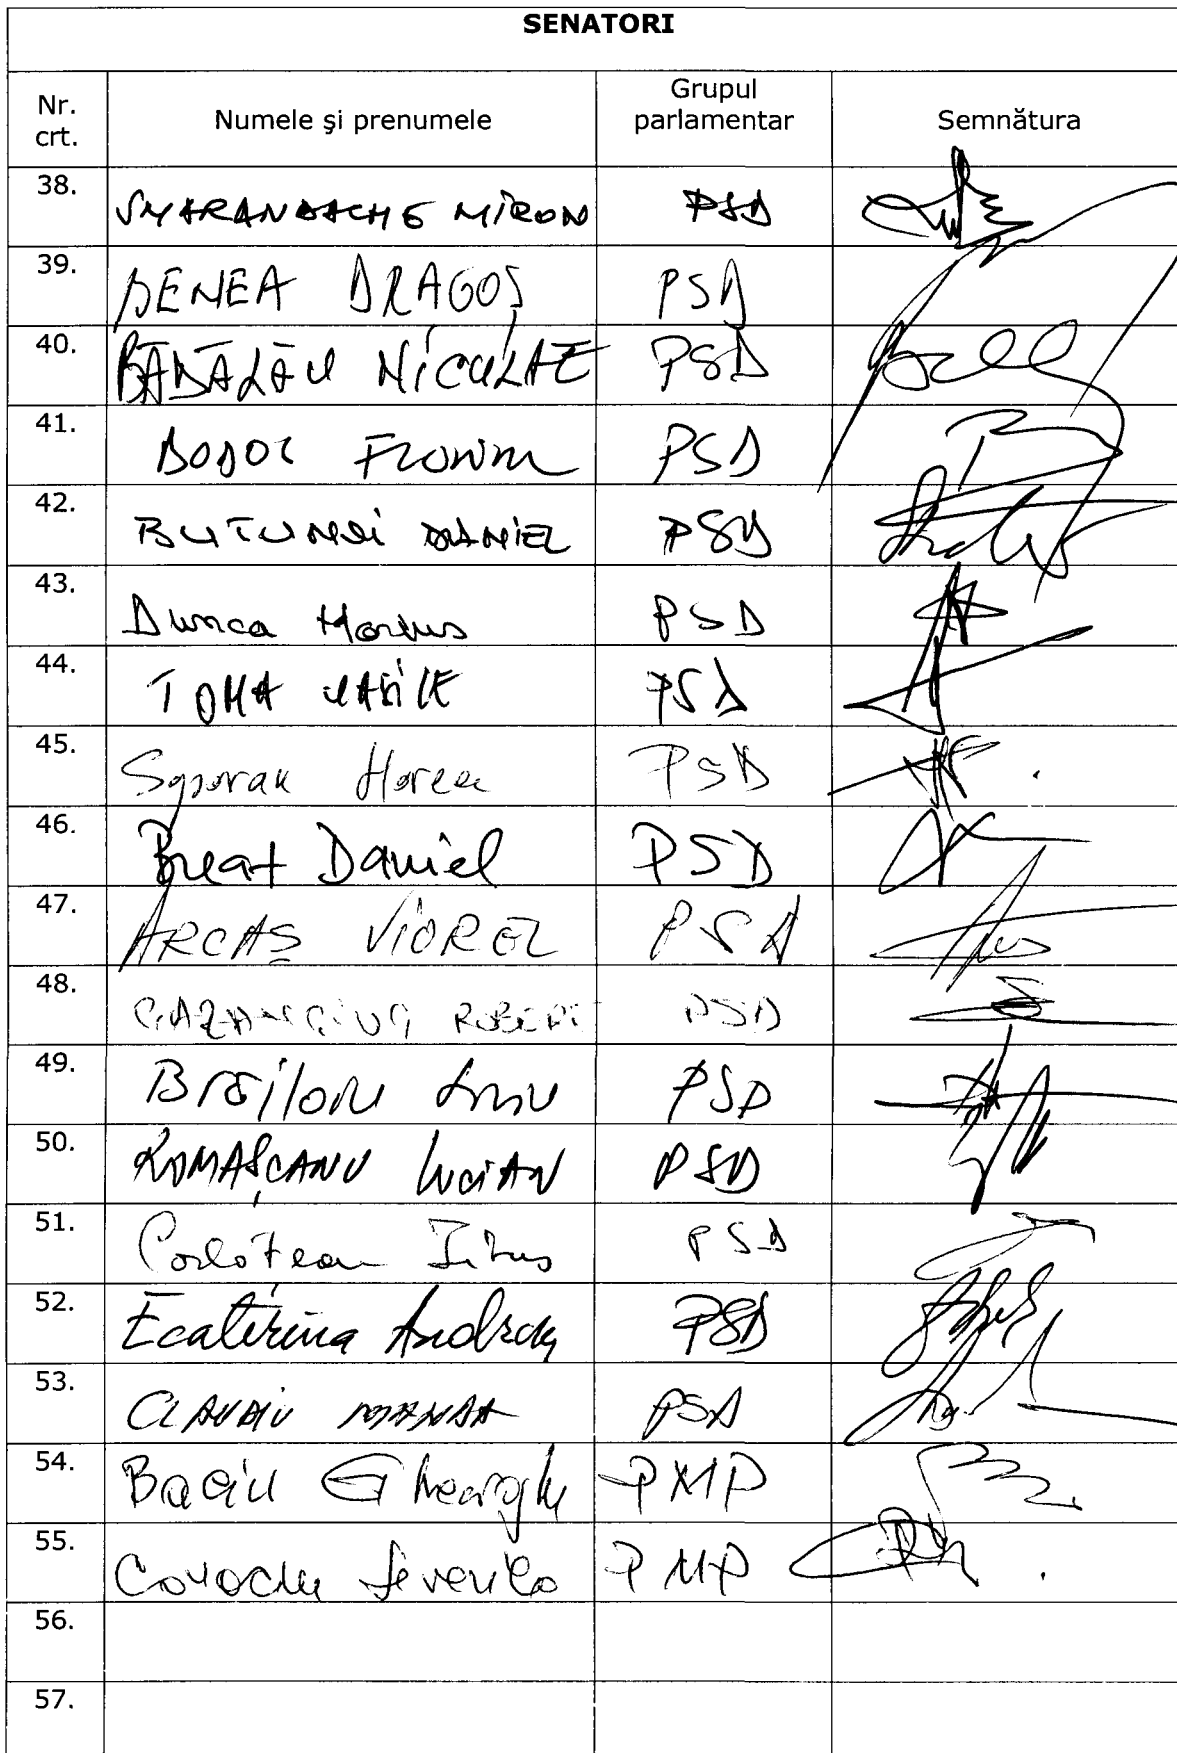 SENATORI
Nr. crt. Numele şi prenumele Grupul parlamentar Semnătura
38. SMARANDACHE MIRON PSD
39. BENEA DRAGOȘ PSD
40. BĂDĂLĂU NICULAE PSD
41. BODOG FLORIAN PSD
42. BUTUNOI DANIEL PSD
43. Dunca Marius PSD
44. TOMA VASILE PSD
45. Soporan PSD
46. Breaz Daniel PSD
47. ARCAȘ VIOREL PSD
48. CAZANCIUC ROBERT PSD
49. Brăiloiu PSD
50. ROMAȘCANU LUCIAN PSD
51. Corlățean Titus PSD
52. Ecaterina Andronescu PSD
53. CLAUDIU MANDA PSD
54. Baciu Gheorghe PMP
55. PMP
56.
57.